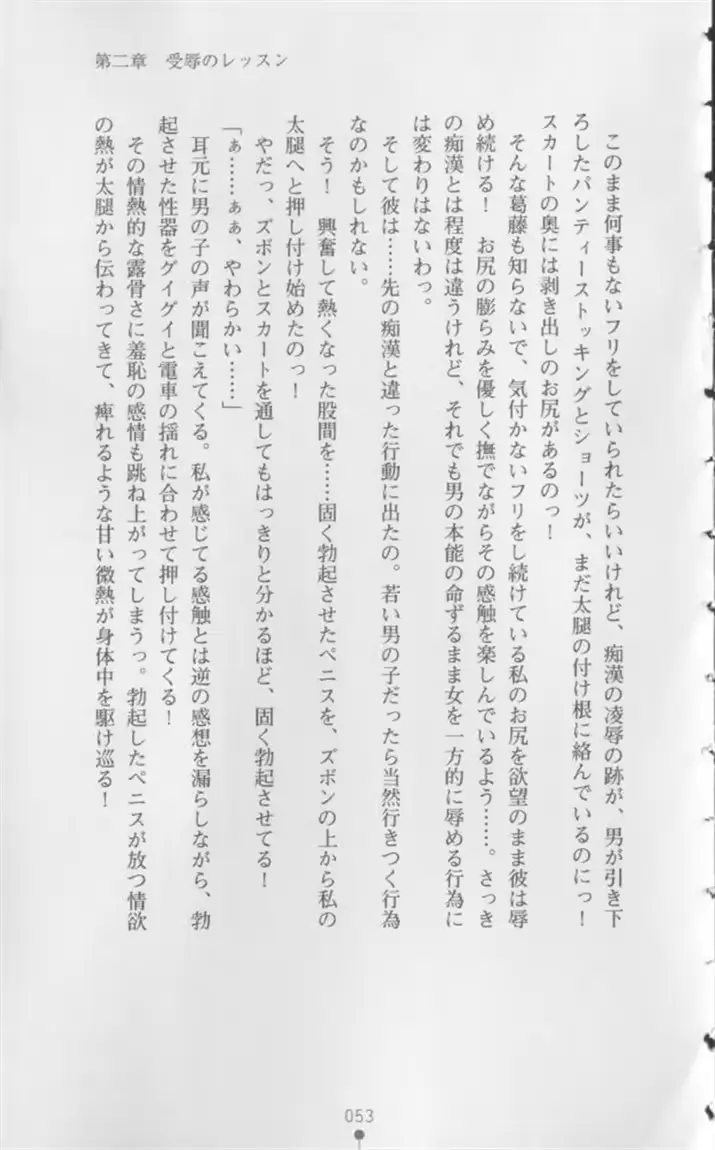 第二章　受辱のレッスン
このまま何事もないフリをしていられたらいいけれど、痴漢の凌辱の跡が、男が引き下
ろしたパンティーストッキングとショーツが、まだ太腿の付け根に絡んでいるのにっ！
スカートの奥には剥き出しのお尻があるのっ！
そんな葛藤も知らないで、気付かないフリをし続けている私のお尻を欲望のまま彼は辱
め続ける！　お尻の膨らみを優しく撫でながらその感触を楽しんでいるよう……。さっき
の痴漢とは程度は違うけれど、それでも男の本能の命ずるまま女を一方的に辱める行為に
は変わりはないわっ。
そして彼は……先の痴漢と違った行動に出たの。若い男の子だったら当然行きつく行為
なのかもしれない。
そう！　興奮して熱くなった股間を……固く勃起させたペニスを、ズボンの上から私の
太腿へと押し付け始めたのっ！
やだっ、ズボンとスカートを通してもはっきりと分かるほど、固く勃起させてる！
「ぁ……ぁぁ、やわらかい……」
耳元に男の子の声が聞こえてくる。私が感じてる感触とは逆の感想を漏らしながら、勃
起させた性器をグイグイと電車の揺れに合わせて押し付けてくる！
その情熱的な露骨さに羞恥の感情も跳ね上がってしまうっ。勃起したペニスが放つ情欲
の熱が太腿から伝わってきて、痺れるような甘い微熱が身体中を駆け巡る！
053